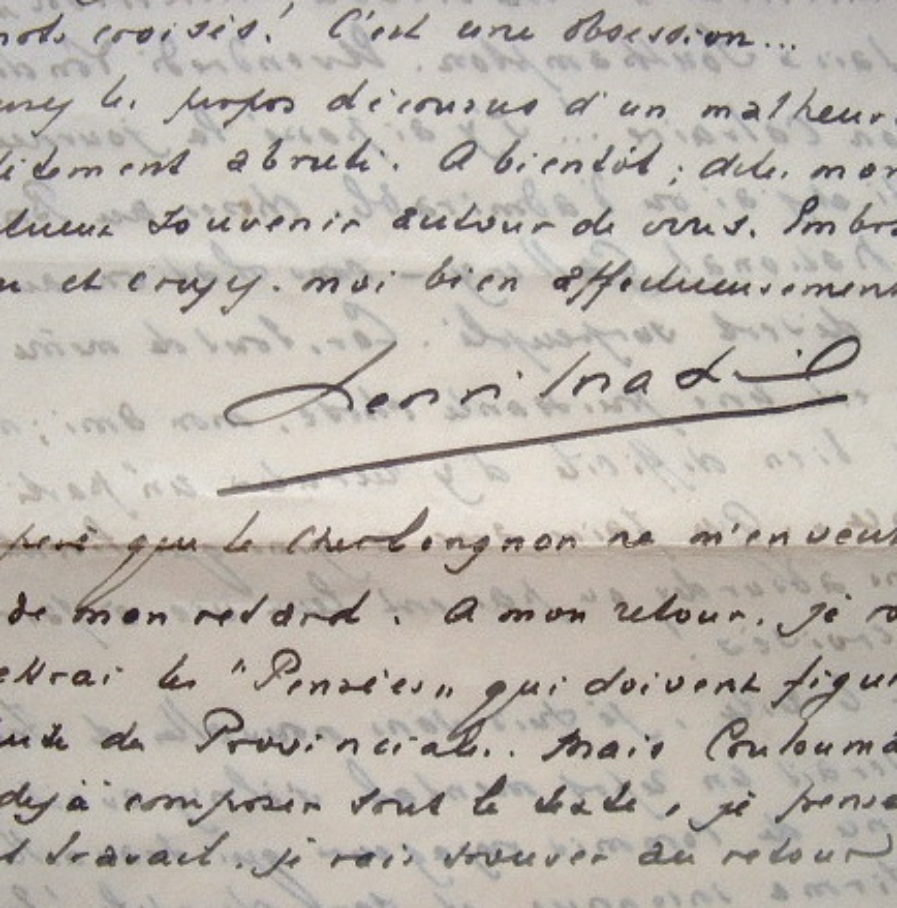 mots croisés! C'est une obsession...
les propos décousus d'un malheur
abruti. A bientôt; dites mon
souvenir autour de vous. Embras
et croyez-moi bien affectueusement
Henri
que le cher Longnon ne m'en veut
de mon retard. A mon retour, je
les "Pensées" qui doivent figur
Provinciales. Mais Coulouma
déjà composer tout le texte, je pense
travail, je vais trouver au retour